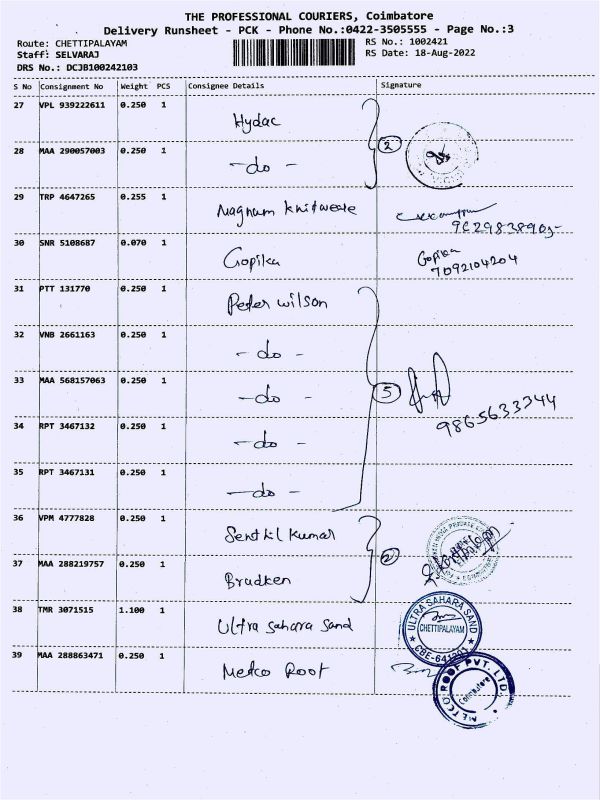 THE PROFESSIONAL COURIERS, Coimbatore
Delivery Runsheet - PCK - Phone No.:0422-3505555 - Page No.:3
Route: CHETTIPALAYAM RS No.: 1002421
Staff: SELVARAJ RS Date: 18-Aug-2022
DRS No.: DCJB100242103
S No Consignment No Weight PCS Consignee Details Signature
27 VPL 939222611 0.250 1 Hydac
28 MAA 290057003 0.250 1 -do- 2
29 TRP 4647265 0.255 1 Magnum Knitweare
30 SNR 5108687 0.070 1 Gopika Gopika
7092104204
31 PTT 131770 0.250 1 Peter Wilson
32 VNB 2661163 0.250 1 -do-
33 MAA 568157063 0.250 1 -do- 5
9865633344
34 RPT 3467132 0.250 1 -do-
35 RPT 3467131 0.250 1 -do-
36 VPM 4777828 0.250 1 Senthil Kumar
37 MAA 288219757 0.250 1 Bradken 2
38 TMR 3071515 1.100 1 Ultra Sahara Sand ULTRA SAHARA SAND
CHETTIPALAYAM
39 MAA 288863471 0.250 1 Metco Roof
METCO ROOF PVT. LTD.
Coimbatore